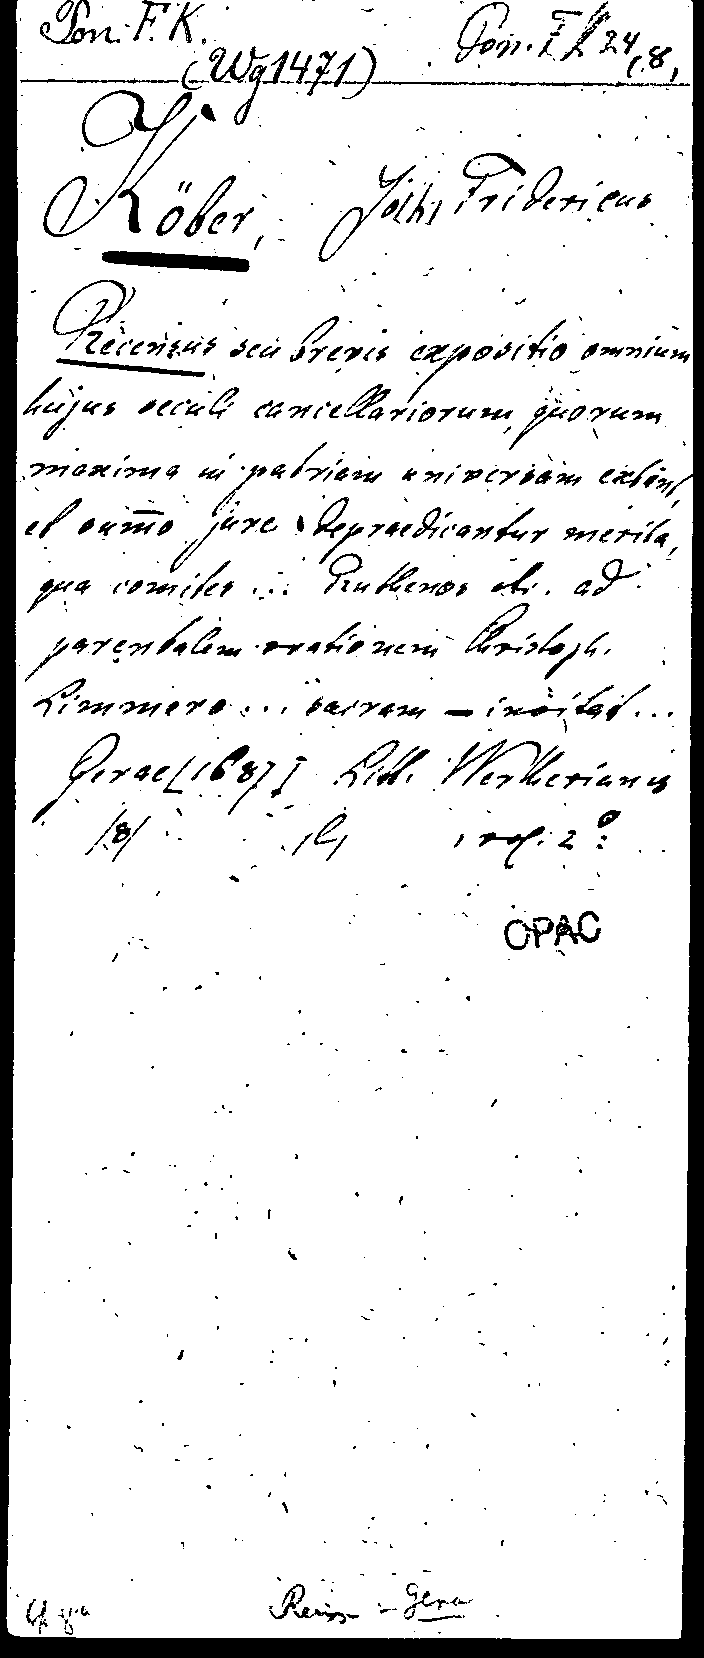 Pon. F. K. Pon. F K 24, 8,
(Wg1471)
Köber, Joth, Fridericus
Recensus seu brevis expositio omnium
hujus seculi cancellariorum, quorum
maxima in patriam universam extant,
et sum̄o jure depraedicantur merita,
qua comites ... Ruthenos etc. ad
parentalem orationem Christoph.
Limmero ... sacram — invitat ...
Gerae [1687] Lith. Wertherianis
/8/ 2°
OPAC
Reuss - Gera